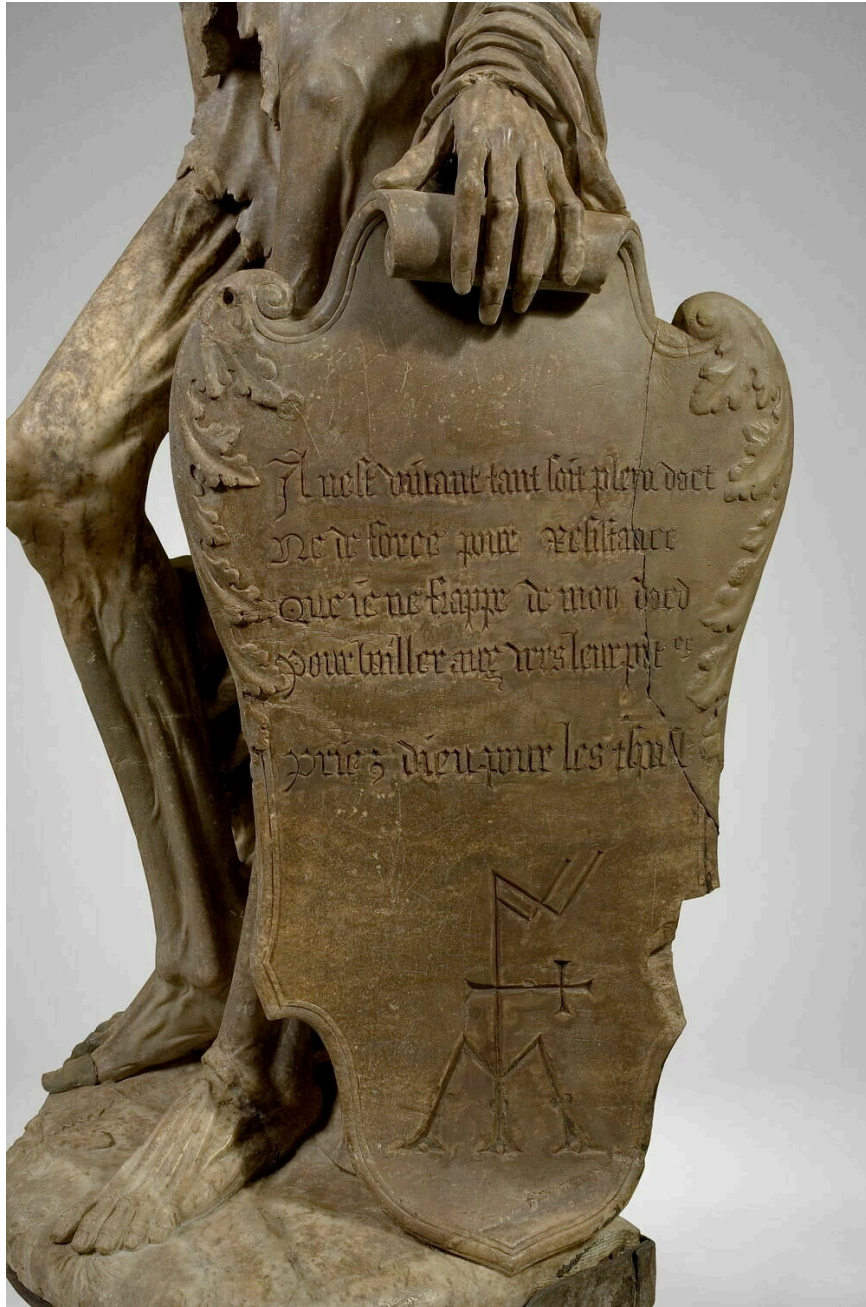 Il nest vivant tant soit plein dart
Ne de force pour resistance
Que ie ne frappe de mon dard
Pour bailler aux vers leur pit
priez dieu pour les